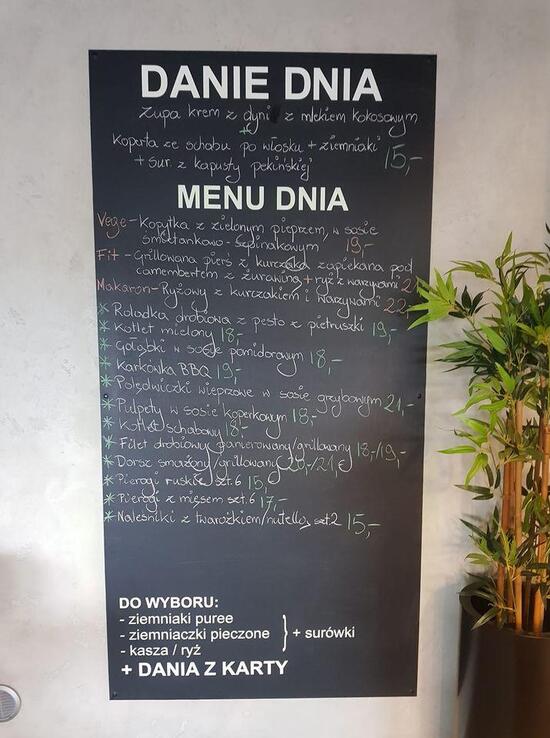 DANIE DNIA
Zupa krem z dyni z mlekiem kokosowym
+
Koperta ze schabu po włosku + ziemniaki
+ sur. z kapusty pekińskiej 15,-
MENU DNIA
Vege - Kopytka z zielonym pieprzem, w sosie
śmietankowo - szpinakowym 19,-
Fit - Grillowana pierś z kurczaka zapiekana pod
camembertem z żurawiną + ryż z warzywami
Makaron - Ryżowy z kurczakiem i warzywami 22,-
* Roladka drobiowa z pesto z pietruszki 19,-
* Kotlet mielony 18,-
* Gołąbki w sosie pomidorowym 18,-
* Karkówka BBQ 19,-
* Polędwiczki wieprzowe w sosie grzybowym 21,-
* Pulpety w sosie koperkowym 18,-
* Kotlet schabowy 18,-
* Filet drobiowy panierowany/grillowany 18,-/19,-
* Dorsz smażony/grillowany 20,-/21,-
* Pierogi ruskie szt. 6 15,-
* Pierogi z mięsem szt. 6 17,-
* Naleśniki z twarożkiem/nutellą szt. 2 15,-
DO WYBORU:
- ziemniaki puree
- ziemniaczki pieczone } + surówki
- kasza / ryż
+ DANIA Z KARTY